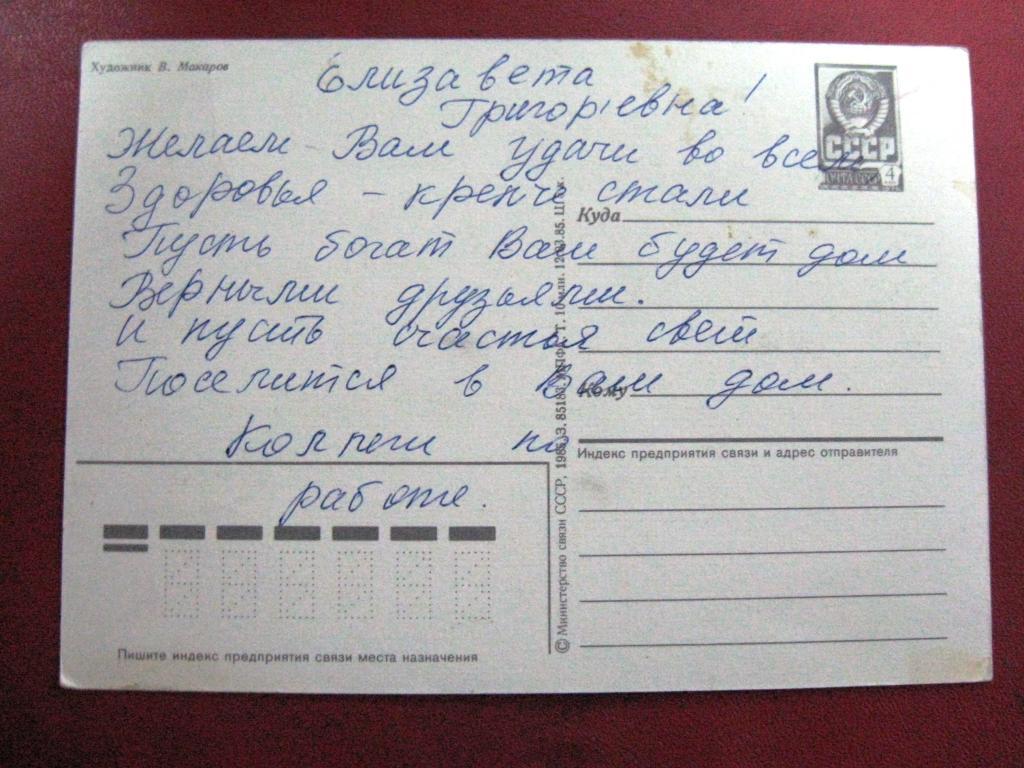 Художник В. Макаров
Елизавета
Григорьевна!
Желаем Вам удачи во всем
Здоровья - крепче стали
Пусть богат Ваш будет дом
Верными друзьями.
И пусть счастья свет
Поселится в Ваш дом.
Коллеги по
работе.
СССР
ПОЧТА СССР 4
Куда
Кому
Индекс предприятия связи и адрес отправителя
© Министерство связи СССР, 1985. З. 8518
12.03.85.
Пишите индекс предприятия связи места назначения